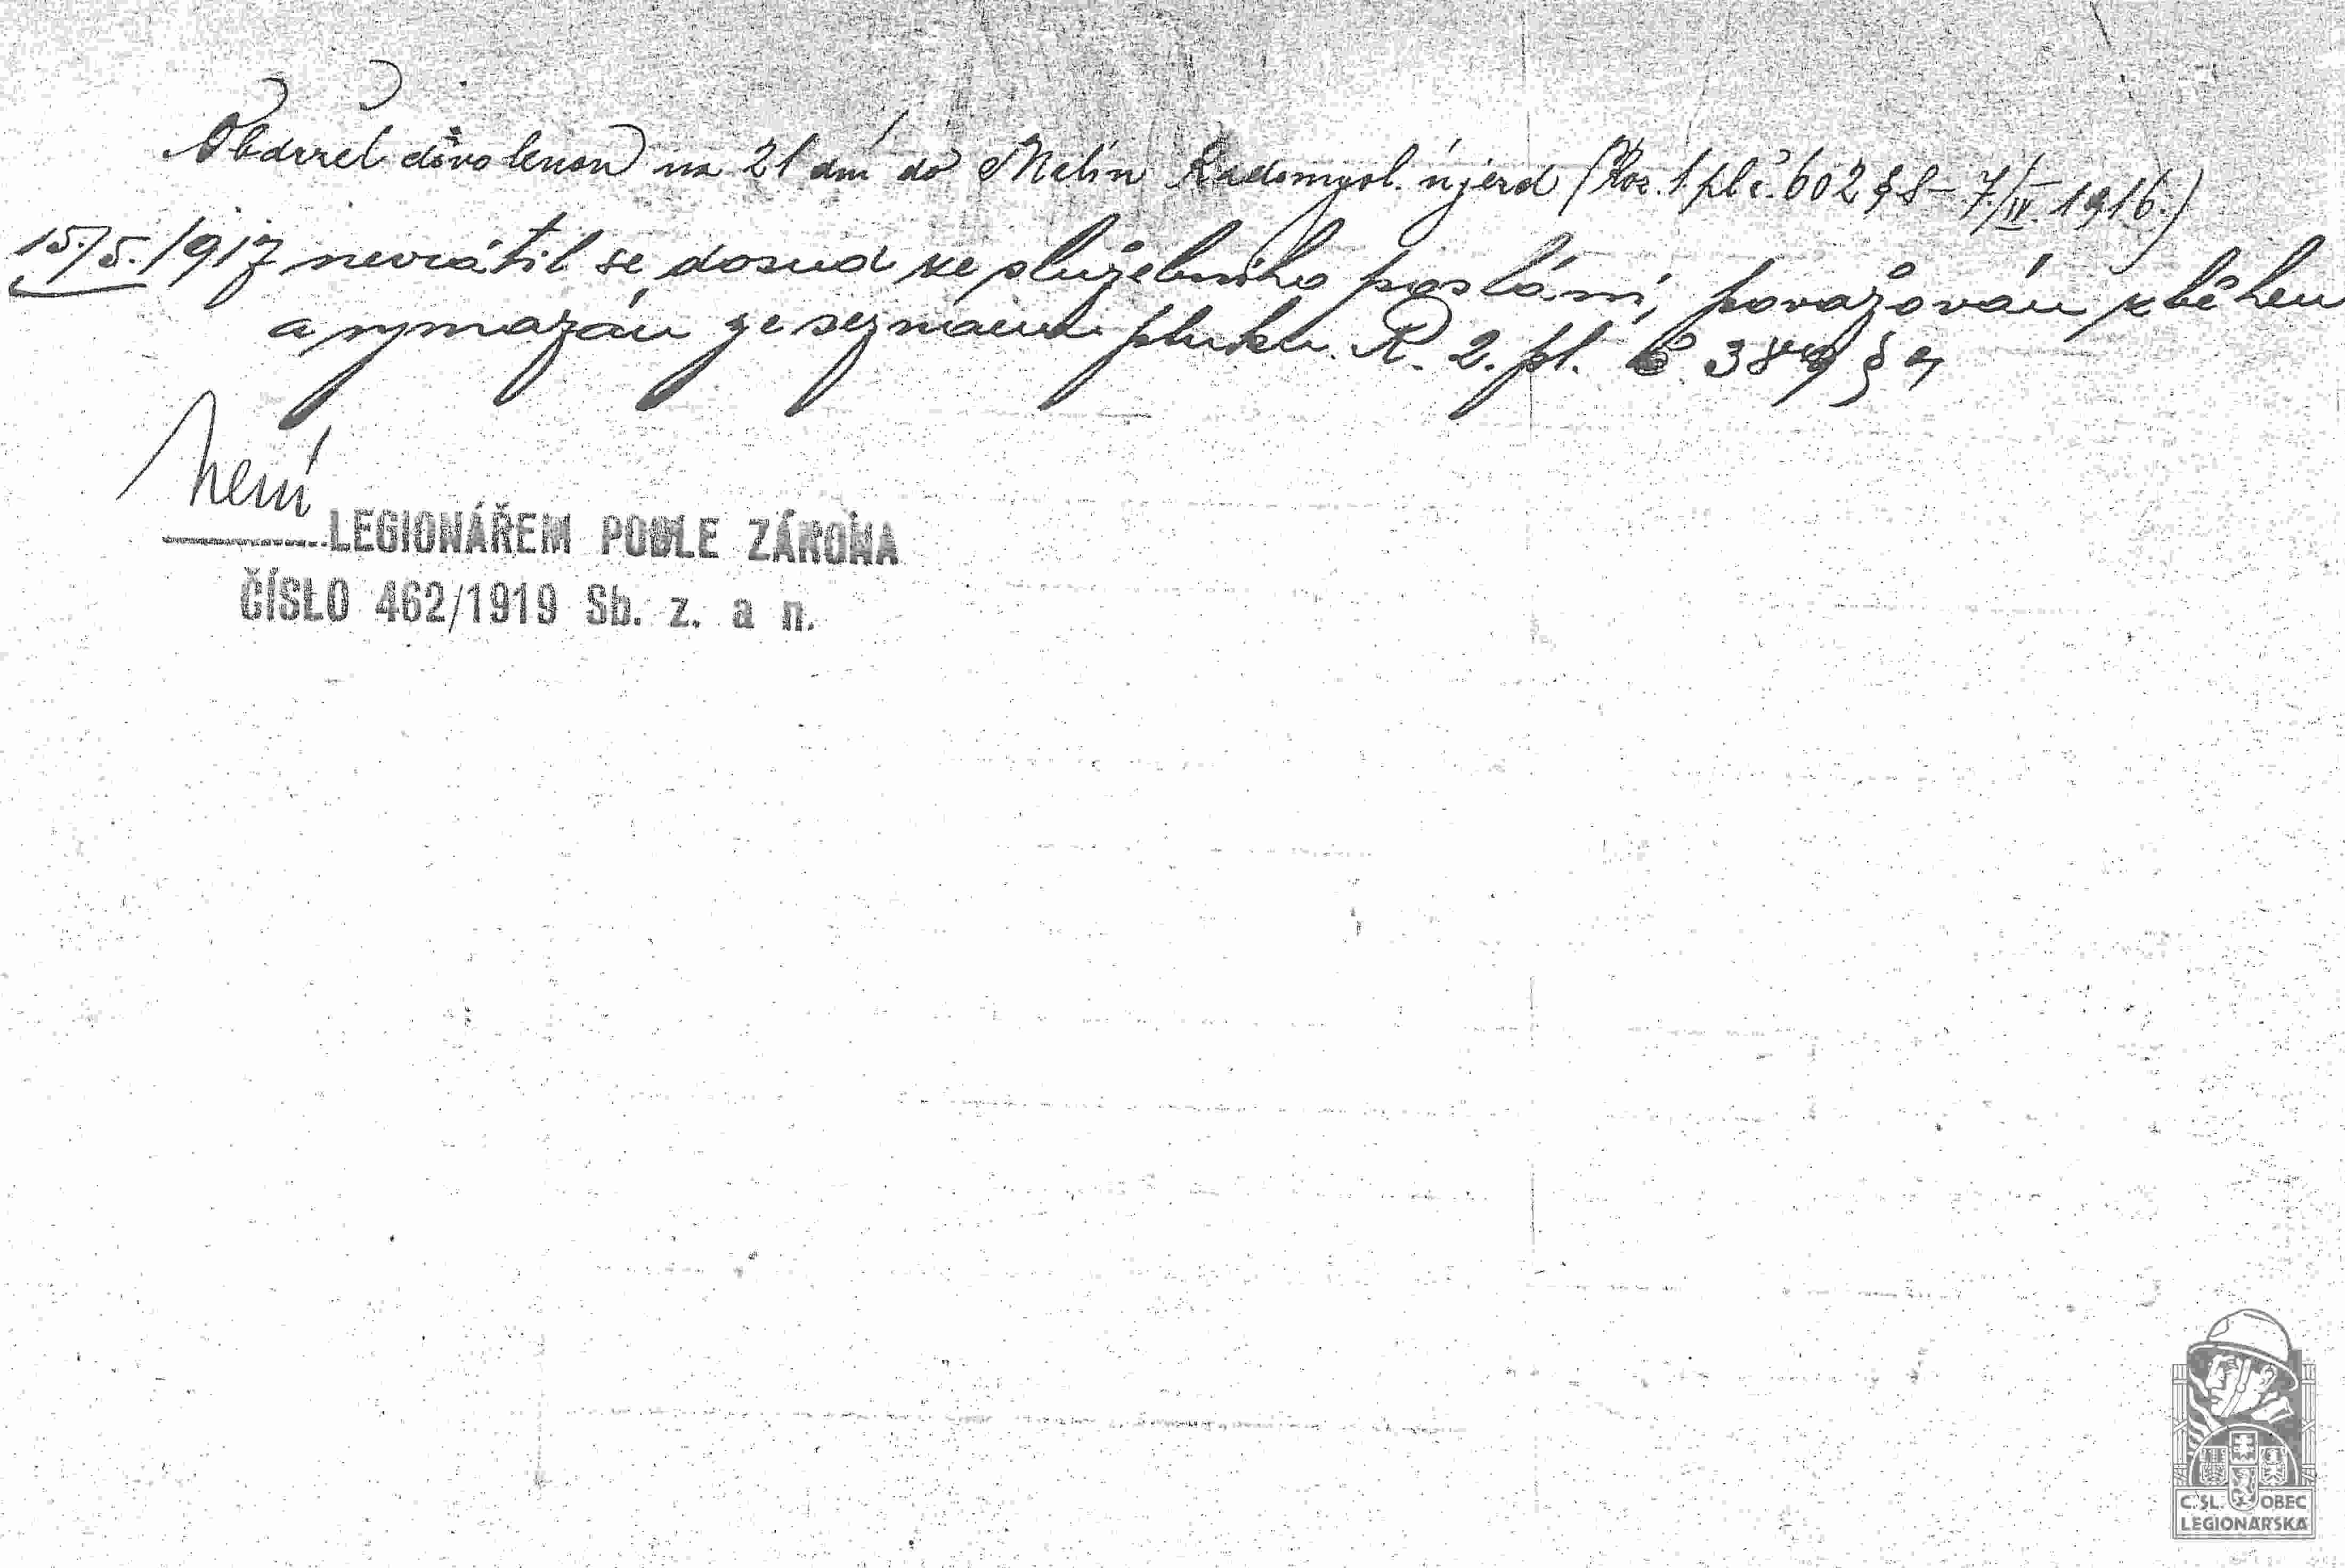 Obdržel dovolenou na 21 dní do Malin Radomysl. újezd (Roz. 1. pl. č. 602 § 8 – 7./IV. 1916.)
15./5. 1917 nevrátil se dosud ze služebního poslání, považován zběhem
a vymazán ze seznamu pluku. R. 2. pl. č 389 §
není
LEGIONÁŘEM PODLE ZÁKONA
ČÍSLO 462/1919 Sb. z. a n.
Č.SL. OBEC
LEGIONÁŘSKÁ